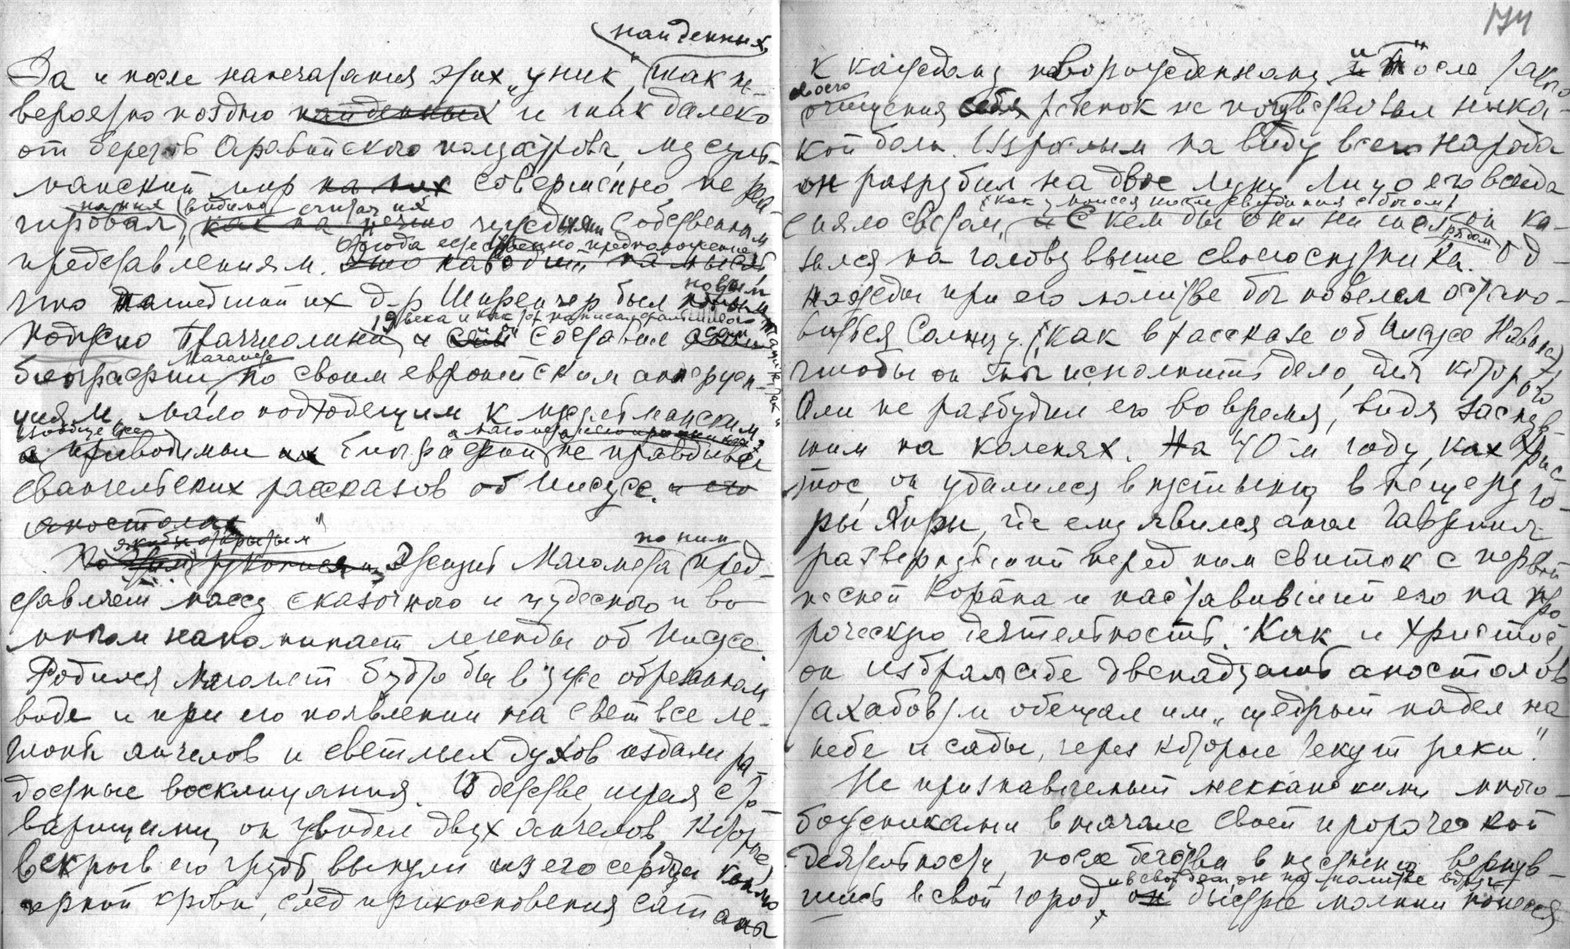 найденных
Да и после напечатания этих „уник" (так не-
вероятно поздно найденных и так далеко
от берегов Аравийского полуострова, мусуль-
манский мир на них совершенно не реа-
на них (видимо считая их
гировал, как на нечто чуждыми собственным
Отсюда естественно предположение
представлениям. Это наводит на мысль
что нашедший их д-р Шпренгер был новым
19 века и как тот написал
Поджио Браччиолини и сам составил
Магомета
биографии, по своим европейским
мало подходящим к мусульманским
Вообще все
а приводимые их биографии не правдивей
евангельских рассказов об Иисусе. и его
апостолах
якобы открытым"
по ним
По этим рукописям, Детство Магомета (пред-
ставляет массу сказочного и чудесного и во
многом напоминает легенды об Иисусе.
Родился Магомет будто бы в уже обрезанном
виде и при его появлении на свет все ле-
гионы ангелов и светлых духов издали ра-
достные восклицания. В детстве, играя с то-
варищами, он увидел двух ангелов, которые,
вскрыв его грудь, вынули из его сердца каплю
черной крови, след прикосновения сатаны
174
к каждому новорожденному. И после такого
своего
очищения себя ребенок не почувствовал ника-
кой боли. Взрослым на виду всего народа
он разрубил на двое луну. Лицо его всегда
(как у Моисея после свидания с богом)
сияло светом, и с кем бы он ни шел рядом он ка-
зался на голову выше своего спутника. Од-
нажды при его молитве бог повелел остано-
виться Солнцу (как в рассказе об Иисусе Навине)
чтобы он мог исполнить дело, для которого
Али не разбудил его во время, видя заснув-
шим на коленях. На 40-м году, как Хрис-
тос, он удалился в пустыню в пещеру го-
ры Хиры, где ему явился ангел Гавриил
развернувший перед ним свиток с первой
песней Корана и наставивший его на про-
роческую деятельность. Как и Христос,
он избрал себе двенадцать апостолов
(ахабов) и обещал им „щедрый надел на
небе и сады, через которые текут реки".
Не признаваемый мекканскими много-
божниками в начале своей пророческой
деятельности, после бегства в пустыню, вернув-
шись в свой город, он быстрее молнии понесся